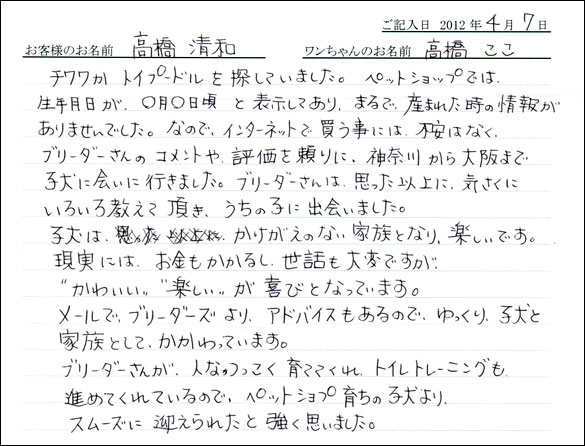 ご記入日 2012 年 4 月 7 日
お客様のお名前 高橋 清和 ワンちゃんのお名前 高橋 ここ
チワワか トイプードル を 探していました。 ペットショップでは、
生年月日が、〇月〇日頃 と 表示してあり、まるで、産まれた時の情報が
ありませんでした。なので、インターネットで 買う事には、不安はなく、
ブリーダーさんの コメントや、評価を頼りに、神奈川から大阪まで
子犬に会いに行きました。ブリーダーさんは、思った以上に、気さくに
いろいろ教えて 頂き、うちの子に 出会いました。
子犬は、 かけがえのない 家族となり、楽しいです。
現実には、お金もかかるし、世話も大変ですが、
"かわいい。" "楽しい。" が 喜びとなっています。
メールで、ブリーダーズ より、アドバイスもあるので、ゆっくり、子犬と
家族として、かかわっています。
ブリーダーさんが、人なつっこく 育ててくれ、トイレトレーニングも
進めてくれているので、ペットショプ 育ちの子犬より、
スムーズに 迎えられたと 強く思いました。